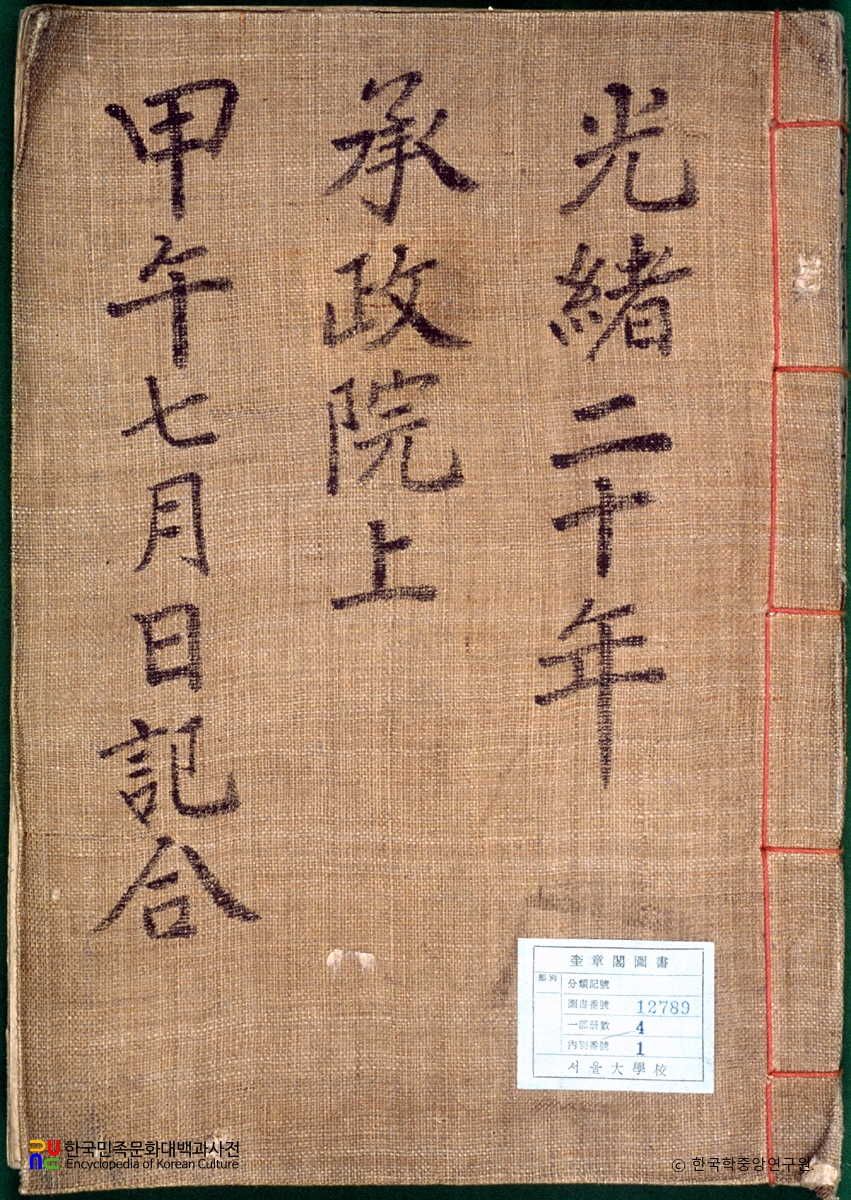 光緖二十年
承政院上
甲午七月日記合
奎章閣圖書
部別
分類記號
圖書番號 12789
一部册數 4
內別番號 1
서울大學校
한국민족문화대백과사전
Encyclopedia of Korean Culture
© 한국학중앙연구원.